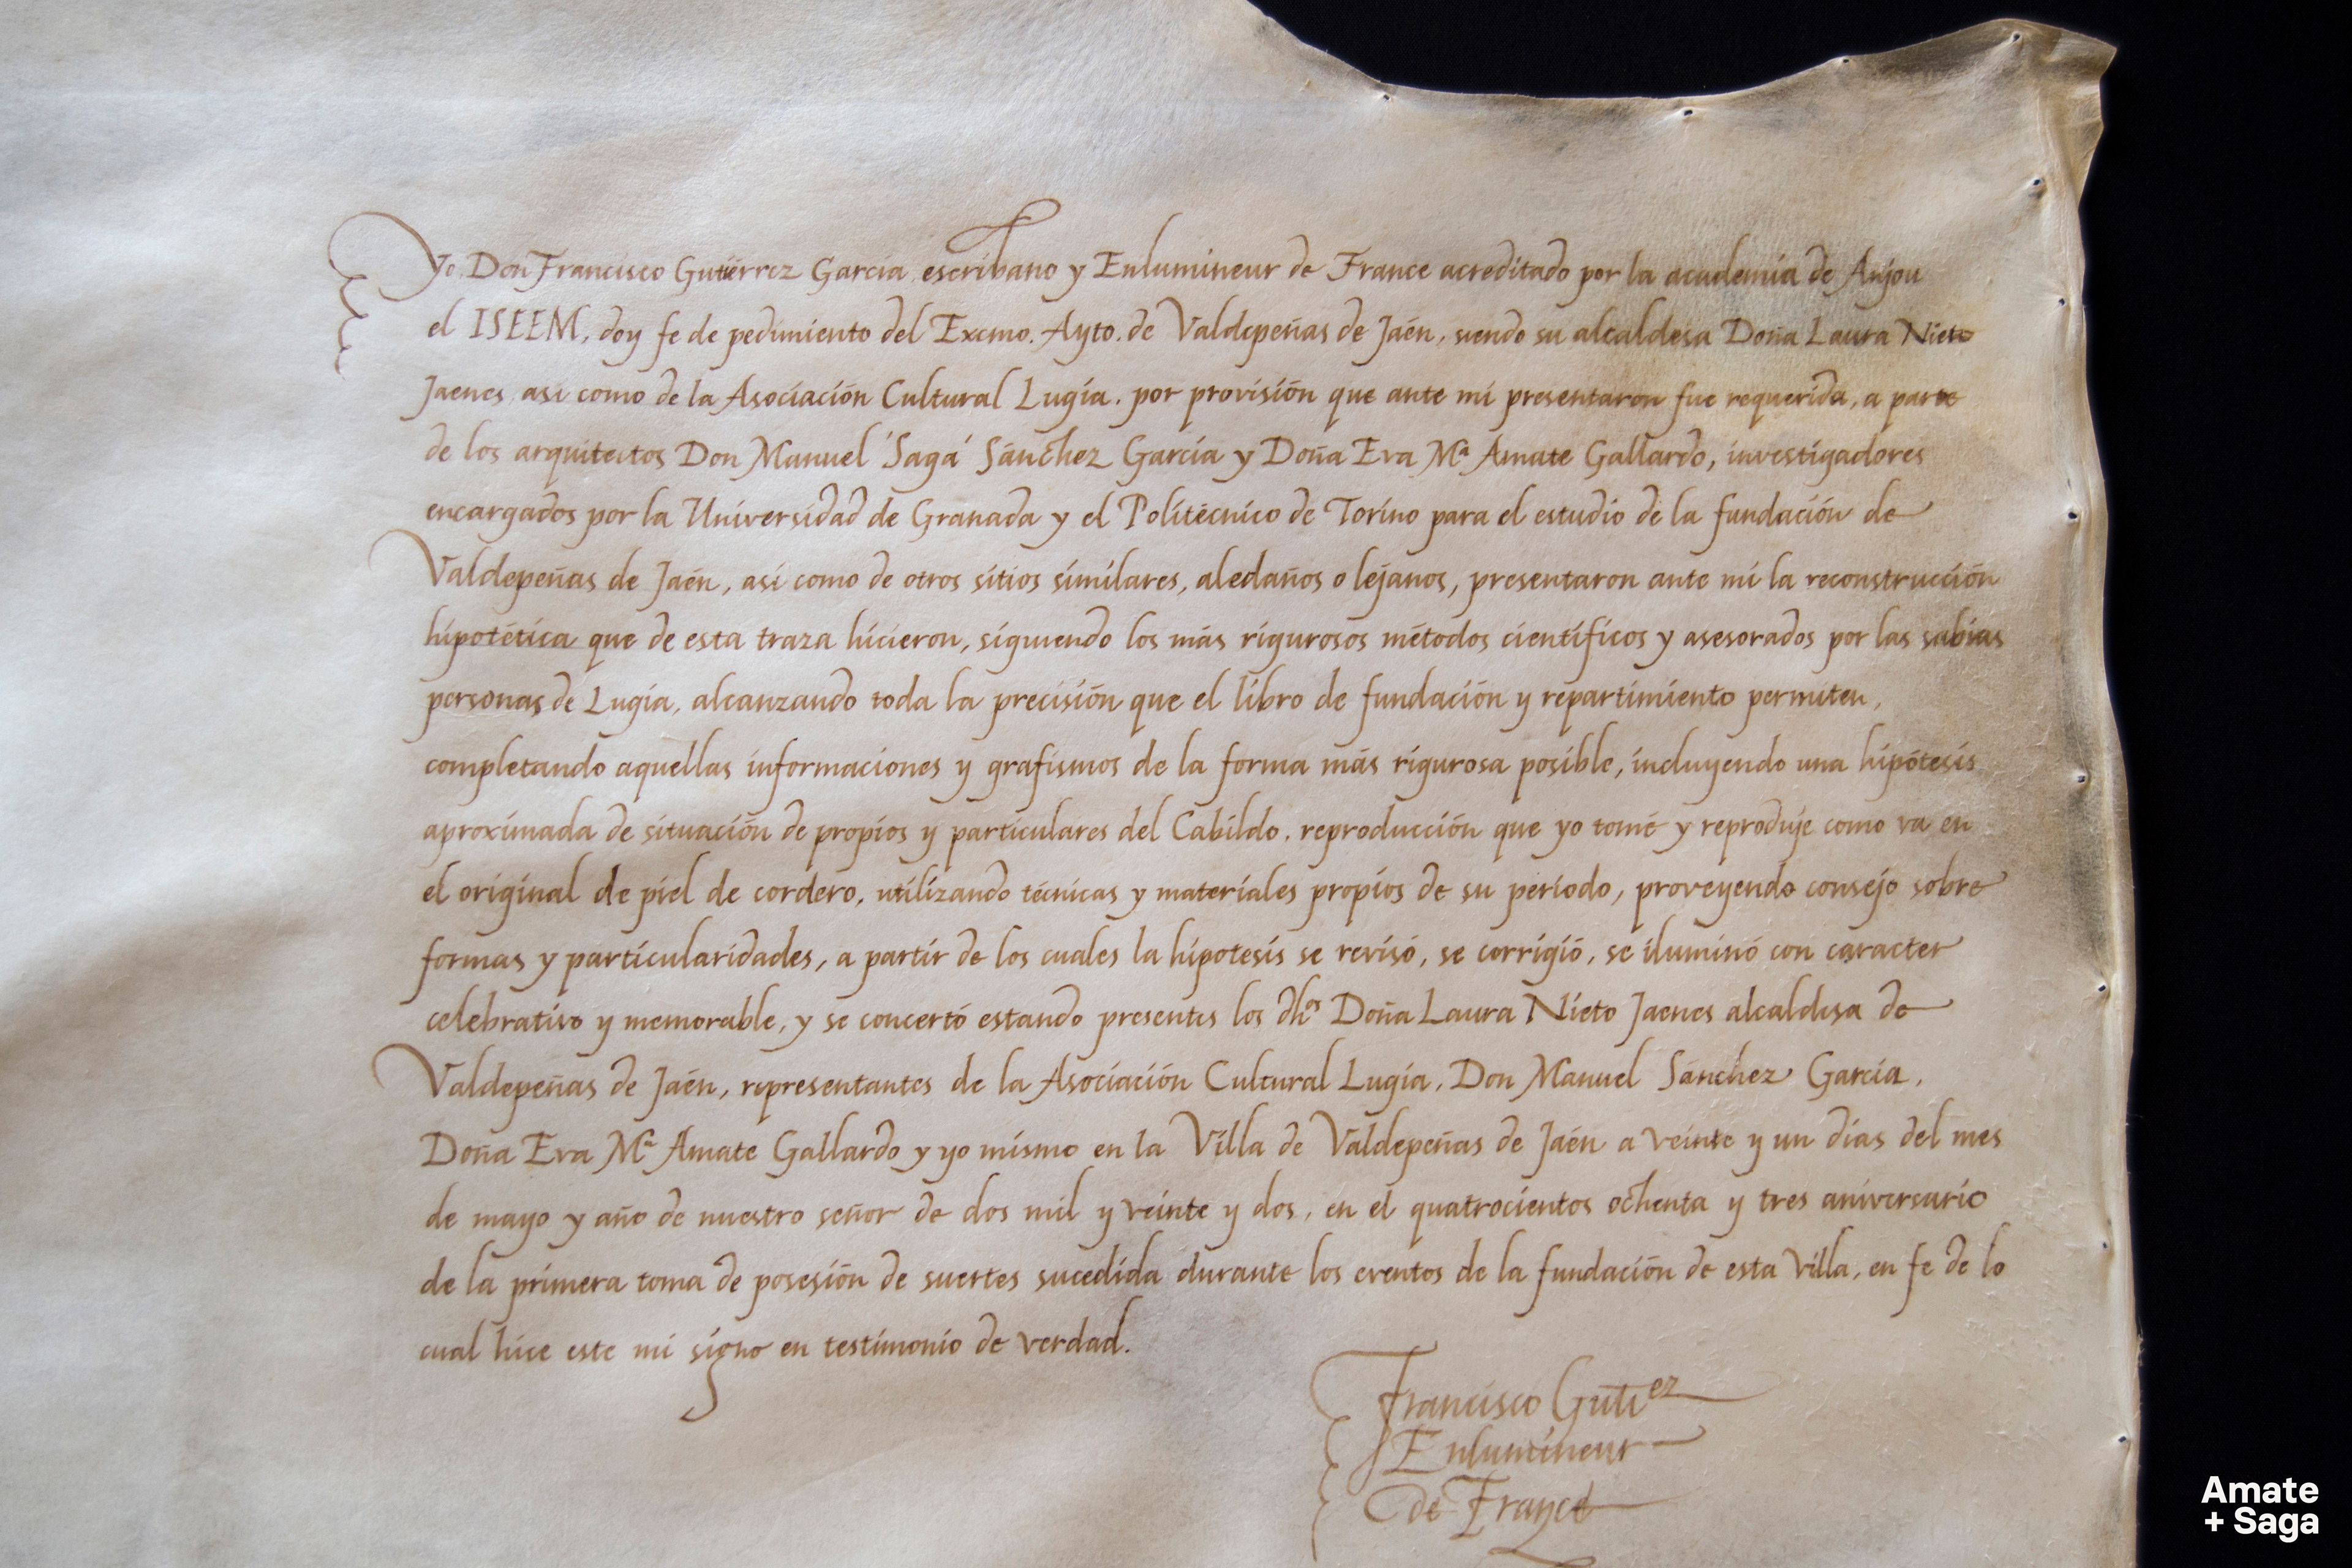 Yo Don Francisco Gutiérrez García escribano y Enlumineur de France acreditado por la academia de Anjou
el ISEEM, doy fe de pedimiento del Excmo. Ayto. de Valdepeñas de Jaén, siendo su alcaldesa Doña Laura Nieto
Jaenes así como de la Asociación Cultural Lugia. por provisión que ante mi presentaron fue requerida, a parte
de los arquitectos Don Manuel 'Saga' Sánchez García y Doña Eva Mª Amate Gallardo, investigadores
encargados por la Universidad de Granada y el Politécnico de Torino para el estudio de la fundación de
Valdepeñas de Jaén, así como de otros sitios similares, aledaños o lejanos, presentaron ante mí la reconstrucción
hipotética que de esta traza hicieron, siguiendo los más rigurosos métodos científicos y asesorados por las sabias
personas de Lugia, alcanzando toda la precisión que el libro de fundación y repartimiento permiten,
completando aquellas informaciones y grafismos de la forma más rigurosa posible, incluyendo una hipótesis
aproximada de situación de propios y particulares del Cabildo. reproducción que yo tomé y reproduje como va en
el original de piel de cordero, utilizando técnicas y materiales propios de su período, proveyendo consejo sobre
formas y particularidades, a partir de los cuales la hipotesis se revisó, se corrigió, se iluminó con caracter
celebrativo y memorable, y se concertó estando presentes los dhos Doña Laura Nieto Jaenes alcaldesa de
Valdepeñas de Jaén, representantes de la Asociación Cultural Lugia, Don Manuel Sánchez García,
Doña Eva Mª Amate Gallardo y yo mismo en la Villa de Valdepeñas de Jaén a veinte y un días del mes
de mayo y año de nuestro señor de dos mil y veinte y dos, en el quatrocientos ochenta y tres aniversario
de la primera toma de posesión de suertes sucedida durante los eventos de la fundación de esta Villa, en fe de lo
cual hice este mi signo en testimonio de verdad.
Francisco Gutiez
Enlumineur
de France
Amate
+ Saga